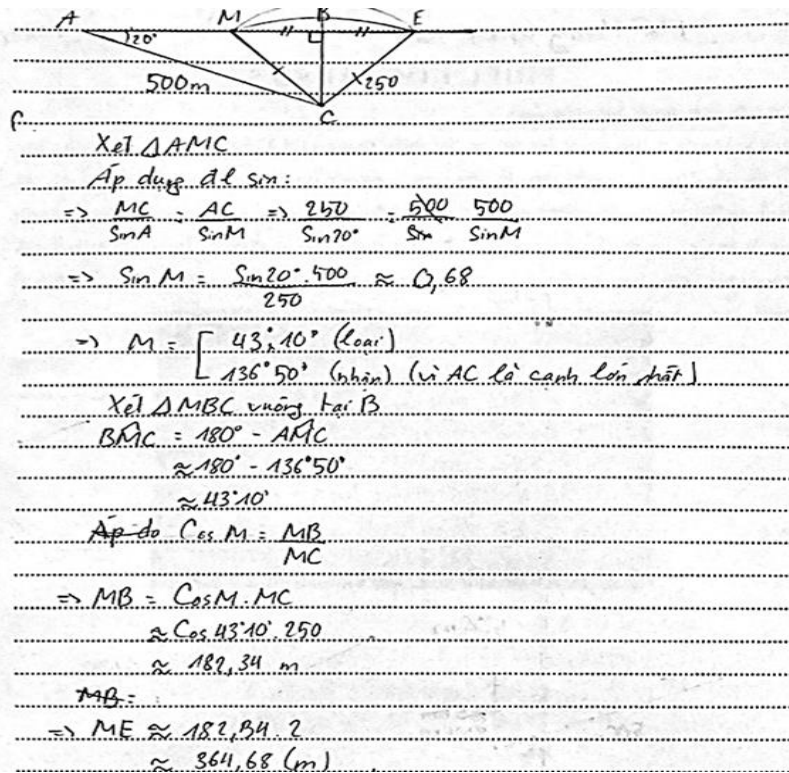 A M B E
20°
500m 250
C
Xét ΔAMC
Áp dụng đl sin:
=> MC/SinA = AC/SinM => 250/Sin20° = 500/Sin 500/SinM
=> Sin M = Sin20°.500/250 ≈ 0,68
=> M = [ 43°10' (loại)
136°50' (nhận) (vì AC là cạnh lớn nhất)
Xét ΔMBC vuông tại B
BMC = 180° - AMC
≈ 180° - 136°50'
≈ 43°10'
Áp do Cos M = MB/MC
=> MB = CosM . MC
≈ Cos 43°10' . 250
≈ 182,34 m
MB =
=> ME ≈ 182,34 . 2
≈ 364,68 (m)